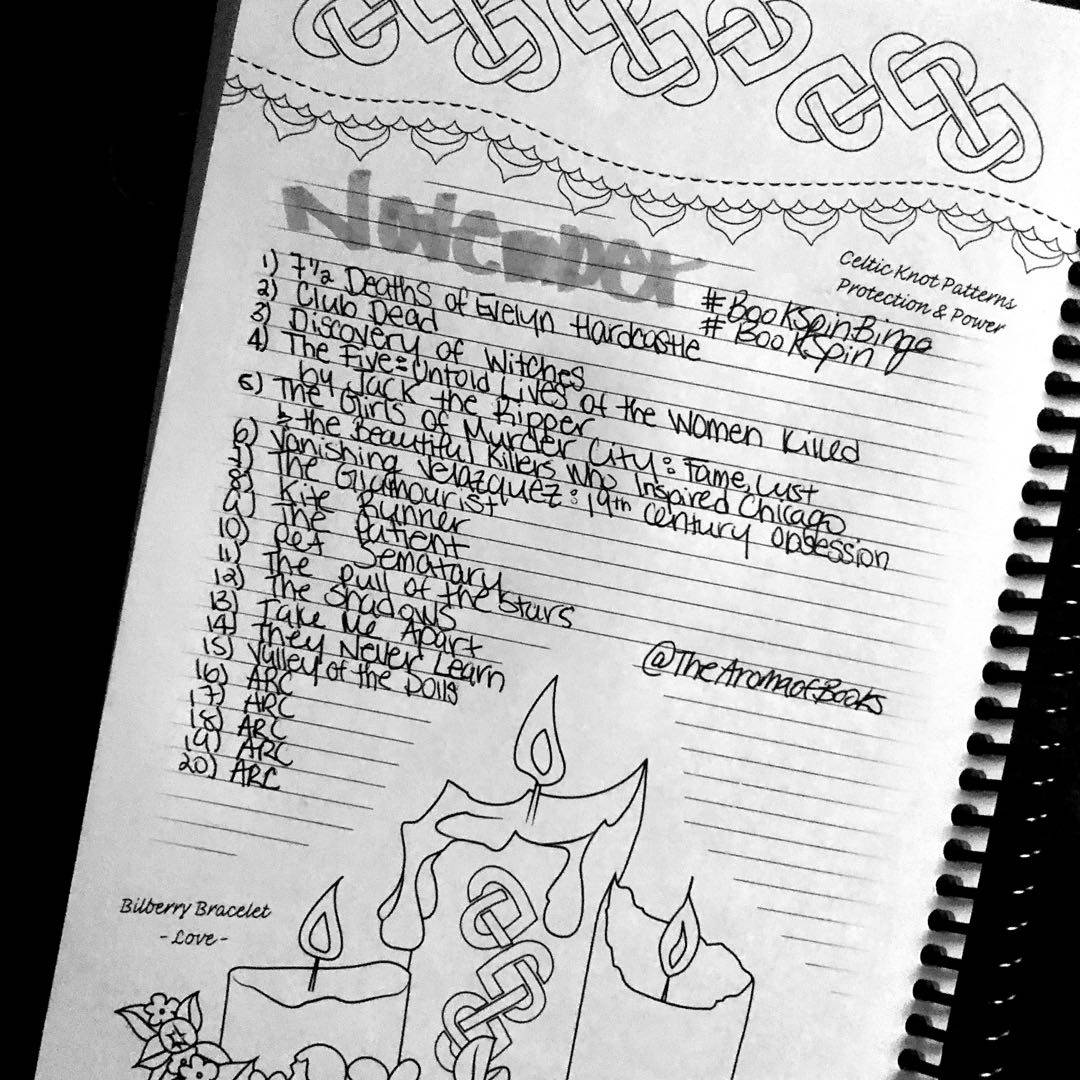 November
Celtic Knot Patterns
Protection & Power
#BookSpinBingo
#BookSpin
1) 7 1/2 Deaths of Evelyn Hardcastle
2) Club Dead
3) Discovery of Witches
4) The Five: Untold Lives of the Women Killed
by Jack the Ripper
5) The Girls of Murder City: Fame, Lust
& the Beautiful Killers Who Inspired Chicago
6) Vanishing Velazquez: 19th Century Obsession
7) The Glamourist
8) Kite Runner
9) The Patient
10) Pet Sematary
11) The Pull of the Stars
12) The Shadows
13) Take Me Apart
14) They Never Learn
15) Valley of the Dolls
16) ARC
17) ARC
18) ARC
19) ARC
20) ARC
@TheAromaofBooks
Bilberry Bracelet
-Love-